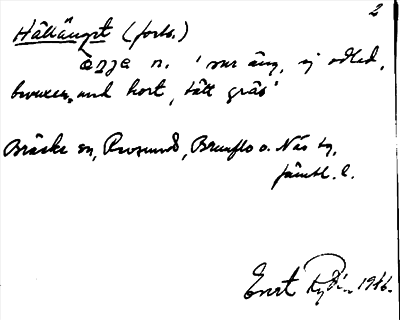 2
Hållängst (forts.)
äŋʒa n. 'sur äng, ej odlad,
bevuxen med kort, tätt gräs'
Bräcke sn, Revsund, Brunflo o. Näs tg,
Jämtl. l.
Ernst 1916.